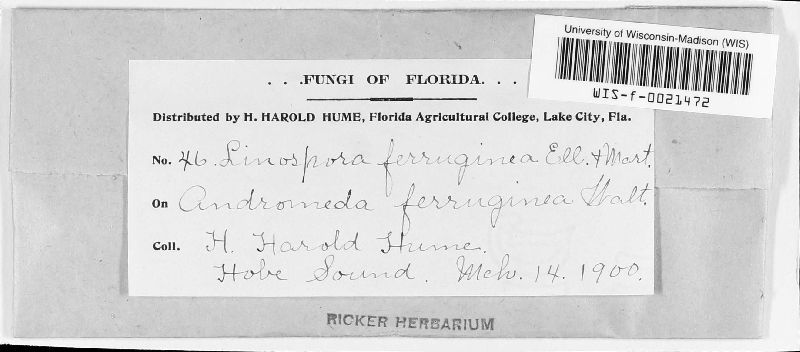 University of Wisconsin-Madison (WIS)
WIS-f-0021472
. . .FUNGI OF FLORIDA. . .
Distributed by H. HAROLD HUME, Florida Agricultural College, Lake City, Fla.
No. 46. Linospora ferruginea Ell. & Mart.
On Andromeda ferruginea Walt.
Coll. H. Harold Hume.
Hobe Sound. Mch. 14. 1900.
RICKER HERBARIUM